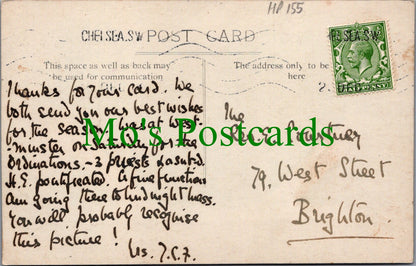 HP 155
CHELSEA.S.W
POST CARD
This space as well as back may
be used for communication
The address only to be
Thanks for your card. We
both send you our best wishes
for the season. I was at West-
minster on Saturday for the
Ordinations. – 2 priests & a subd.
H.E. pontificated. A fine function
Am going there to midnight mass.
You will probably recognise
this picture!
Mo's Postcards
The
Rev.
79. West Street
Brighton.